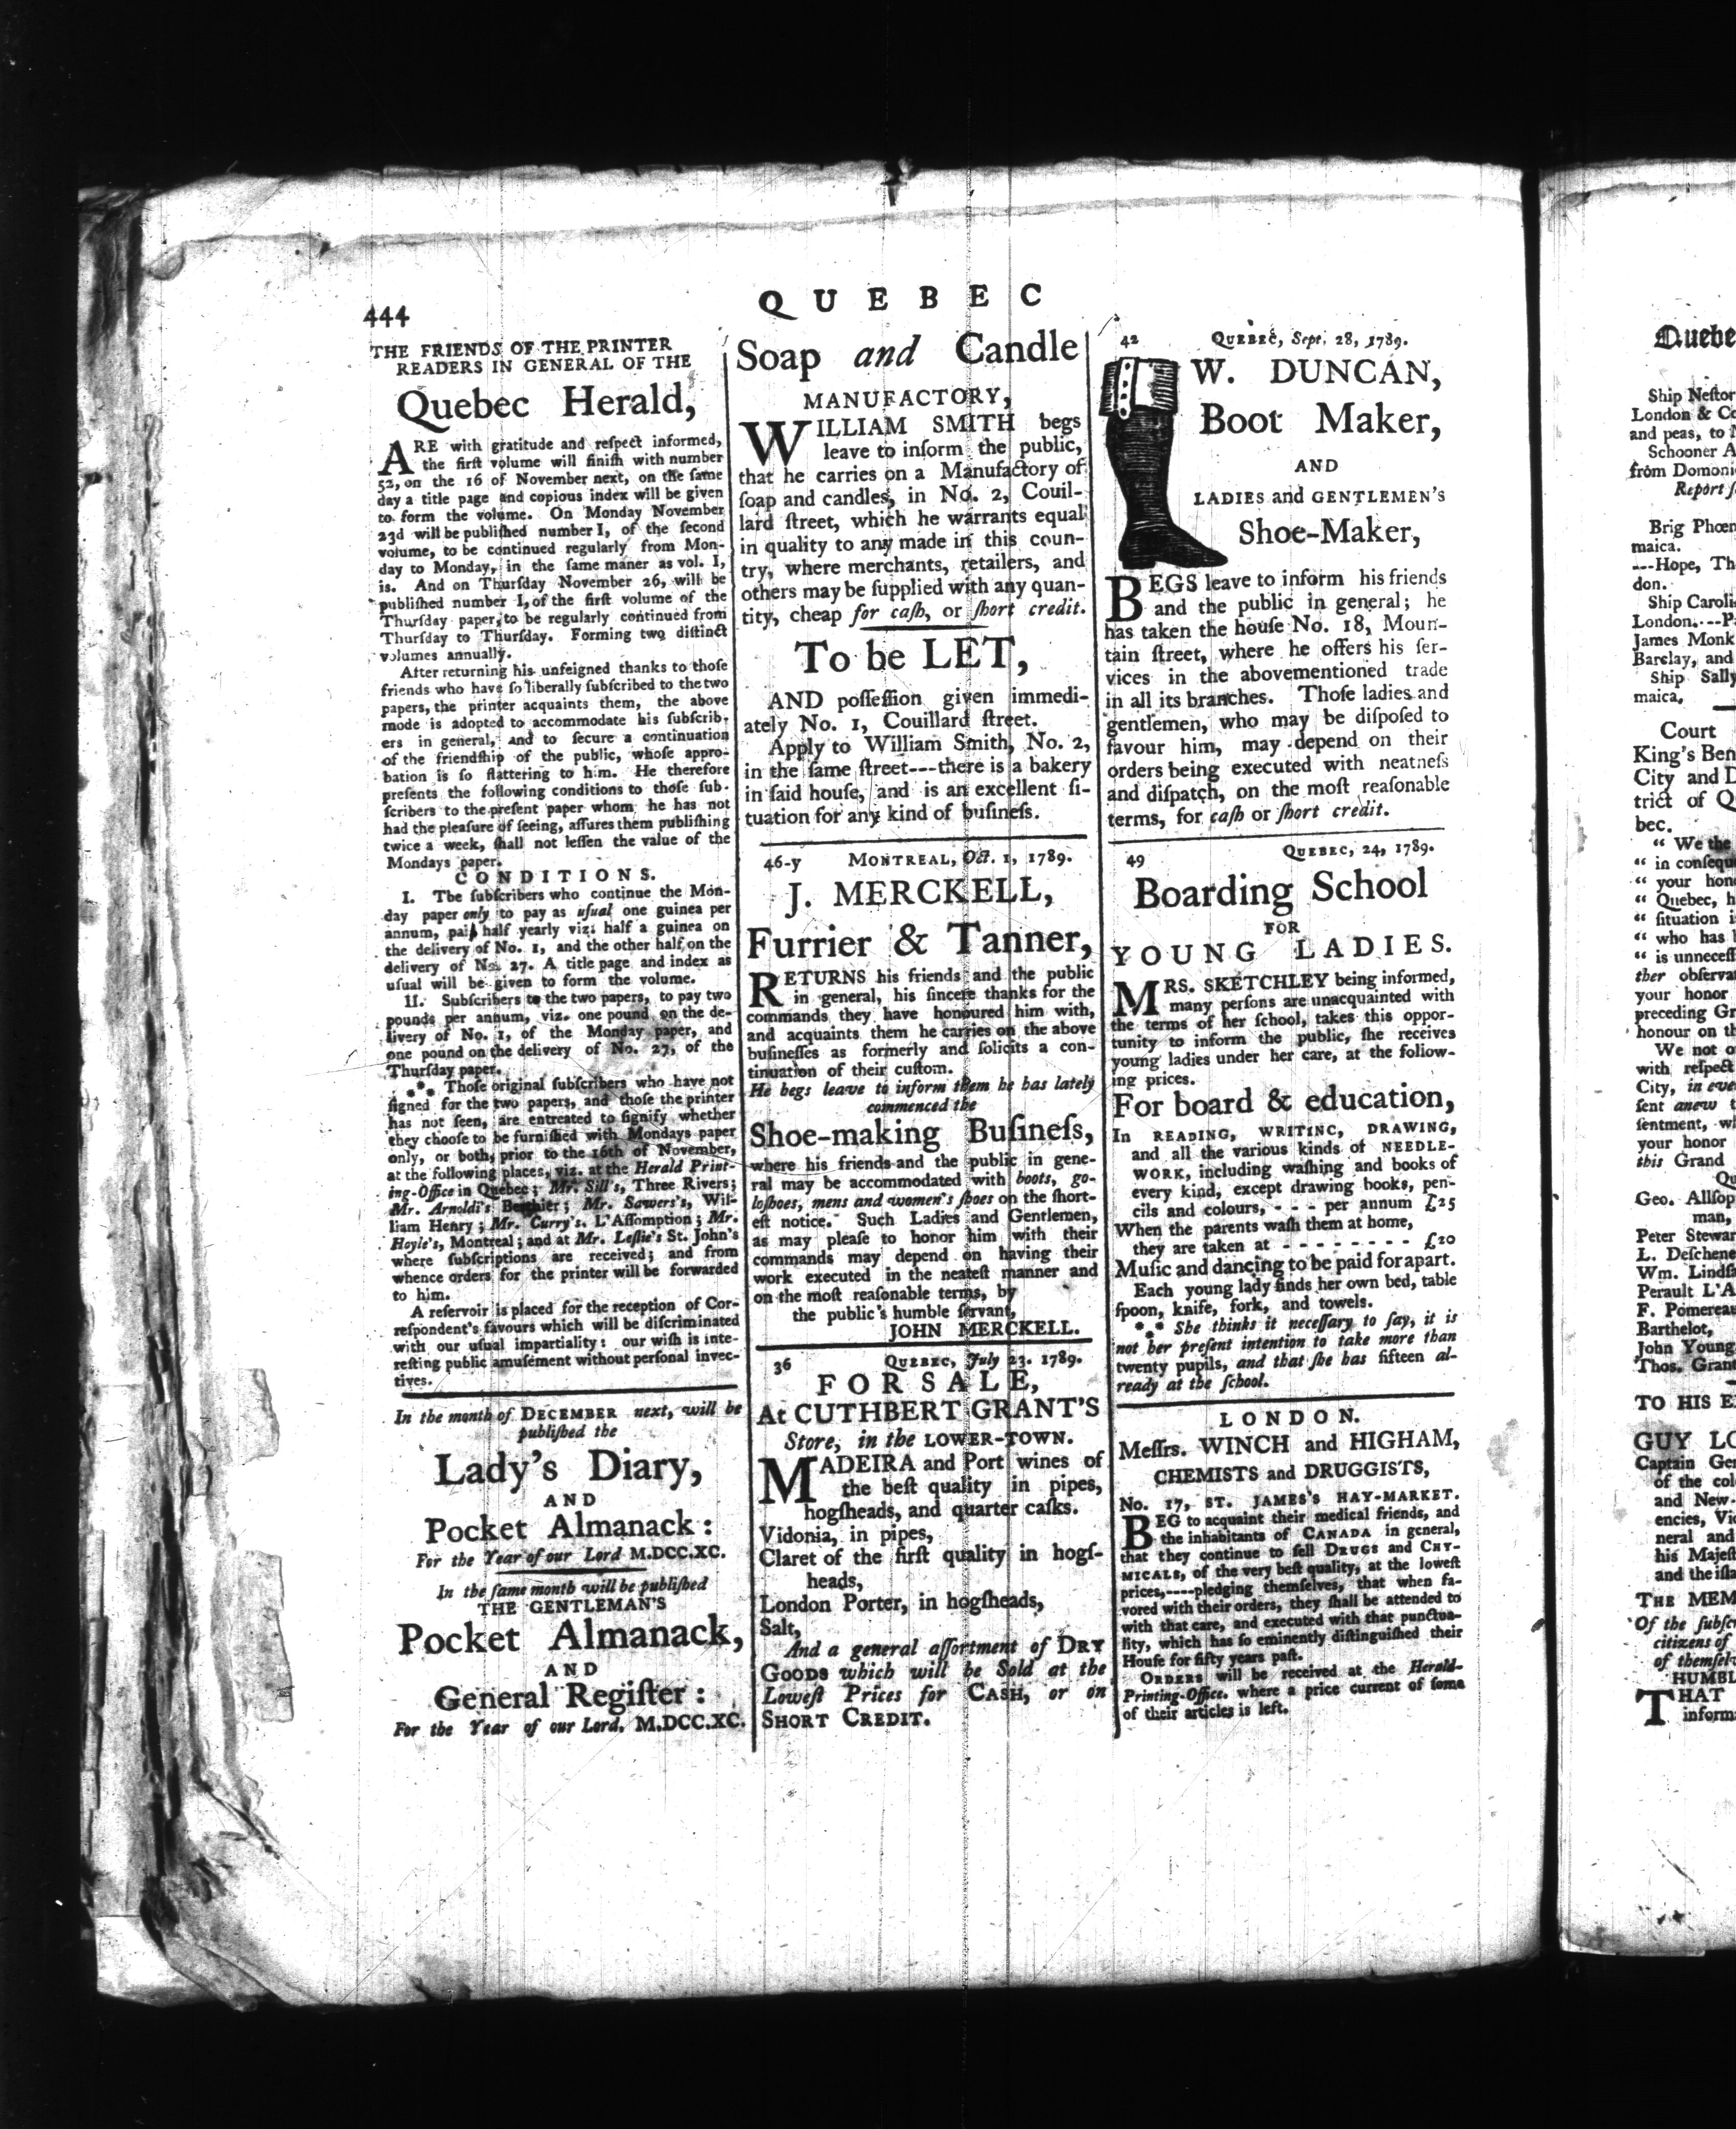 444
QUEBEC
THE FRIENDS OF THE PRINTER
READERS IN GENERAL OF THE
Quebec Herald,
ARE with gratitude and reſpect informed,
the firſt volume will finiſh with number
52, on the 16 of November next, on the ſame
day a title page and copious index will be given
to form the volume. On Monday November
23d will be publiſhed number I, of the ſecond
volume, to be continued regularly from Mon-
day to Monday, in the ſame maner as vol. I,
is. And on Thurſday November 26, will be
publiſhed number I, of the firſt volume of the
Thurſday paper, to be regularly continued from
Thurſday to Thurſday. Forming two diſtinct
volumes annually.
After returning his unfeigned thanks to thoſe
friends who have ſo liberally ſubſcribed to the two
papers, the printer acquaints them, the above
mode is adopted to accommodate his ſubſcrib-
ers in general, and to ſecure a continuation
of the friendſhip of the public, whoſe appro-
bation is ſo flattering to him. He therefore
preſents the following conditions to thoſe ſub-
ſcribers to the preſent paper whom he has not
had the pleaſure of ſeeing, aſſures them publiſhing
twice a week, ſhall not leſſen the value of the
Mondays paper.
CONDITIONS.
I. The ſubſcribers who continue the Mon-
day paper only to pay as uſual one guinea per
annum, paid half yearly viz: half a guinea on
the delivery of No. 1, and the other half on the
delivery of No. 27. A title page and index as
uſual will be given to form the volume.
II. Subſcribers to the two papers, to pay two
pounds per annum, viz. one pound on the de-
livery of No. 1, of the Monday paper, and
one pound on the delivery of No. 27, of the
Thurſday paper.
*** Thoſe original ſubſcribers who have not
ſigned for the two papers, and thoſe the printer
has not ſeen, are entreated to ſignify whether
they chooſe to be furniſhed with Mondays paper
only, or both, prior to the 16th of November,
at the following places, viz. at the Herald Print-
ing-Office in Quebec; Mr. Sill's, Three Rivers;
Mr. Arnoldi's Berthier; Mr. Sawers's, Wil-
liam Henry; Mr. Curry's, L'Aſſomption; Mr.
Hoyle's, Montreal; and at Mr. Leſlie's St. John's
where ſubſcriptions are received; and from
whence orders for the printer will be forwarded
to him.
A reſervoir is placed for the reception of Cor-
reſpondent's favours which will be diſcriminated
with our uſual impartiality: our wiſh is inte-
reſting public amuſement without perſonal invec-
tives.
In the month of DECEMBER next, will be
publiſhed the
Lady's Diary,
AND
Pocket Almanack:
For the Year of our Lord M.DCC.XC.
In the ſame month will be publiſhed
THE GENTLEMAN'S
Pocket Almanack,
AND
General Regiſter:
For the Year of our Lord. M.DCC.XC.
Soap and Candle
MANUFACTORY,
WILLIAM SMITH begs
leave to inform the public,
that he carries on a Manufactory of
ſoap and candles, in No. 2, Couil-
lard ſtreet, which he warrants equal
in quality to any made in this coun-
try, where merchants, retailers, and
others may be ſupplied with any quan-
tity, cheap for caſh, or ſhort credit.
To be LET,
AND poſſeſſion given immedi-
ately No. 1, Couillard ſtreet.
Apply to William Smith, No. 2,
in the ſame ſtreet---there is a bakery
in ſaid houſe, and is an excellent ſi-
tuation for any kind of buſineſs.
46-y MONTREAL, Oct. 1, 1789.
J. MERCKELL,
Furrier & Tanner,
RETURNS his friends and the public
in general, his ſincere thanks for the
commands they have honoured him with,
and acquaints them he carries on the above
buſineſſes as formerly and ſolicits a con-
tinuation of their cuſtom.
He begs leave to inform them he has lately
commenced the
Shoe-making Buſineſs,
where his friends and the public in gene-
ral may be accommodated with boots, go-
loſhoes, mens and women's ſhoes on the ſhort-
eſt notice. Such Ladies and Gentlemen,
as may pleaſe to honor him with their
commands may depend on having their
work executed in the neateſt manner and
on the moſt reaſonable terms, by
the public's humble ſervant,
JOHN MERCKELL.
36 QUEBEC, July 23. 1789.
FOR SALE,
At CUTHBERT GRANT'S
Store, in the LOWER-TOWN.
MADEIRA and Port wines of
the beſt quality in pipes,
hogſheads, and quarter caſks.
Vidonia, in pipes,
Claret of the firſt quality in hogſ-
heads,
London Porter, in hogſheads,
Salt,
And a general aſſortment of DRY
GOODS which will be Sold at the
Loweſt Prices for CASH, or on
SHORT CREDIT.
42 QUEBEC, Sept. 28, 1789.
W. DUNCAN,
Boot Maker,
AND
LADIES and GENTLEMEN'S
Shoe-Maker,
BEGS leave to inform his friends
and the public in general; he
has taken the houſe No. 18, Moun-
tain ſtreet, where he offers his ſer-
vices in the abovementioned trade
in all its branches. Thoſe ladies and
gentlemen, who may be diſpoſed to
favour him, may depend on their
orders being executed with neatneſs
and diſpatch, on the moſt reaſonable
terms, for caſh or ſhort credit.
49 QUEBEC, 24, 1789.
Boarding School
FOR
YOUNG LADIES.
MRS. SKETCHLEY being informed,
many perſons are unacquainted with
the terms of her ſchool, takes this oppor-
tunity to inform the public, ſhe receives
young ladies under her care, at the follow-
ing prices.
For board & education,
In READING, WRITINC, DRAWING,
and all the various kinds of NEEDLE-
WORK, including waſhing and books of
every kind, except drawing books, pen-
cils and colours, - - - per annum £25
When the parents waſh them at home,
they are taken at - - - - - - - - £20
Muſic and dancing to be paid for apart.
Each young lady finds her own bed, table
ſpoon, knife, fork, and towels.
*** She thinks it neceſſary to ſay, it is
not her preſent intention to take more than
twenty pupils, and that ſhe has fifteen al-
ready at the ſchool.
LONDON.
Meſſrs. WINCH and HIGHAM,
CHEMISTS and DRUGGISTS,
No. 17, ST. JAMES'S HAY-MARKET.
BEG to acquaint their medical friends, and
the inhabitants of CANADA in general,
that they continue to ſell DRUGS and CHY-
MICALS, of the very beſt quality, at the loweſt
prices,----pledging themſelves, that when fa-
vored with their orders, they ſhall be attended to
with that care, and executed with that punctua-
lity, which has ſo eminently diſtinguiſhed their
Houſe for fifty years paſt.
ORDERS will be received at the Herald-
Printing-Office. where a price current of ſome
of their articles is left.
Quebe
Ship Neſtor
London & Co
and peas, to
Schooner A
from Domoni
Report
Brig Phœn
maica.
---Hope, Th
don.
Ship Caroli
London.---P
James Monk
Barclay, and
Ship Sally
maica,
Court
King's Ben
City and D
trict of Q
bec.
" We the
" in conſequ
" your hon
" Quebec, h
" ſituation i
" who has
" is unneceſſ
ther obſerva
your honor
preceding Gr
honour on th
We not o
with reſpect
City, in eve
ſent anew t
ſentment, wh
your honor
this Grand
Qu
Geo. Allſop
man,
Peter Stewar
L. Deſchene
Wm. Lindſ
Perault L'A
F. Pomerea
Barthelot,
John Young
Thos. Grant
TO HIS E
GUY LO
Captain Gen
of the col
and New-
encies, Vic
neral and
his Majeſt
and the iſla
THE MEM
Of the ſubſc
citizens of
of themſelv
HUMBL
THAT
inform